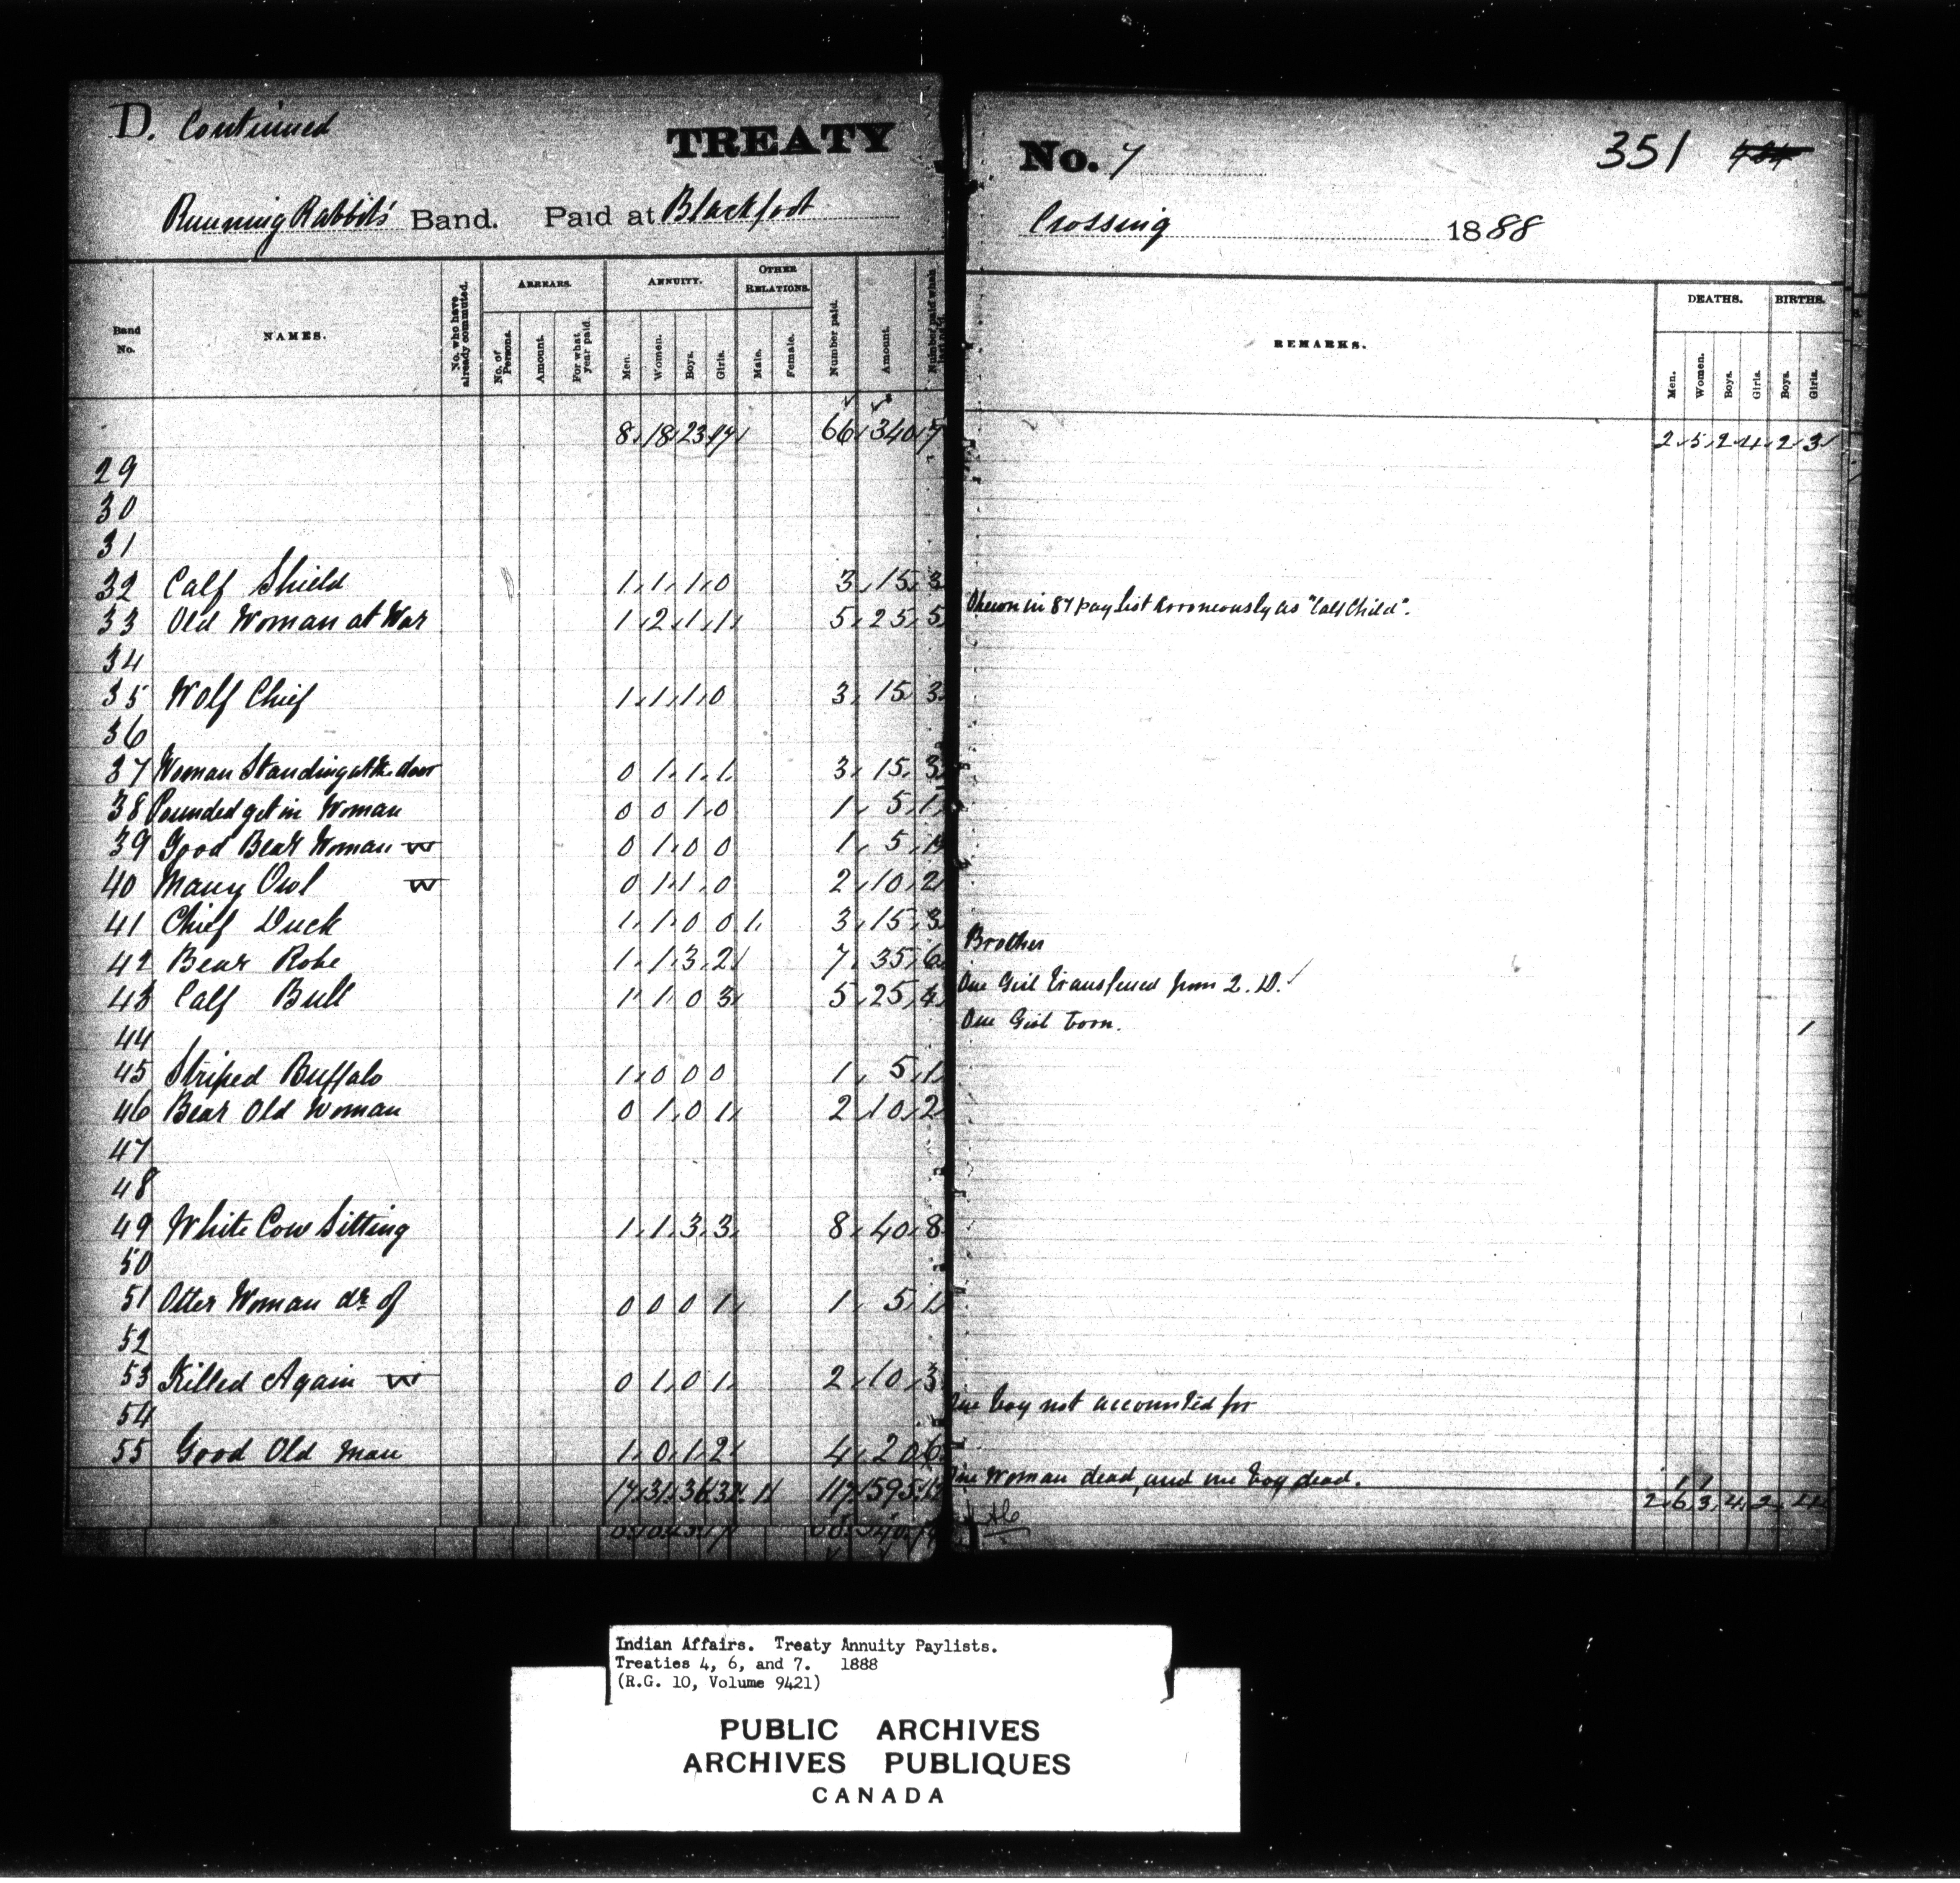 D. Continued
TREATY No. 7
351
Running Rabbits' Band. Paid at Blackfoot Crossing 1888
Band No. NAMES. No. who have already commuted. ARREARS. No. of Persons. Amount. For what year paid. ANNUITY. Men. Women. Boys. Girls. OTHER RELATIONS. Male. Female. Number paid. Amount. Number paid REMARKS. DEATHS. Men. Women. Boys. Girls. BIRTHS. Boys. Girls.
8 18 23 17 66 340 2 5 2 4 2 3
29
30
31
32 Calf Shield 1 1 1 0 3 15 3 Shewn in 87 pay list erroneously as "Calf Child".
33 Old Woman at War 1 2 1 1 5 25 5
34
35 Wolf Chief 1 1 1 0 3 15 3
36
37 Woman Standing at the door 0 1 1 1 3 15 3
38 Pounded get in Woman 0 0 1 0 1 5 1
39 Good Bear Woman W 0 1 0 0 1 5 1
40 Many Owl W 0 1 1 0 2 10 2
41 Chief Duck 1 1 0 0 1 3 15 3 Brother
42 Bear Robe 1 1 3 2 7 35 6 One Girl transferred from 2. D.
43 Calf Bull 1 1 0 3 5 25 4 One Girl born. 1
44
45 Striped Buffalo 1 0 0 0 1 5 1
46 Bear Old Woman 0 1 0 1 2 10 2
47
48
49 White Cow Sitting 1 1 3 3 8 40 8
50
51 Otter Woman dr. of 0 0 0 1 1 5 1
52
53 Killed Again W 0 1 0 1 2 10 3 One boy not accounted for
54
55 Good Old Man 1 0 1 2 4 20 6 One Woman dead, and one boy dead. 1 1
17 31 36 32 1 117 595 2 6 3 4 2 4
Indian Affairs. Treaty Annuity Paylists.
Treaties 4, 6, and 7. 1888
(R.G. 10, Volume 9421)
PUBLIC ARCHIVES
ARCHIVES PUBLIQUES
CANADA